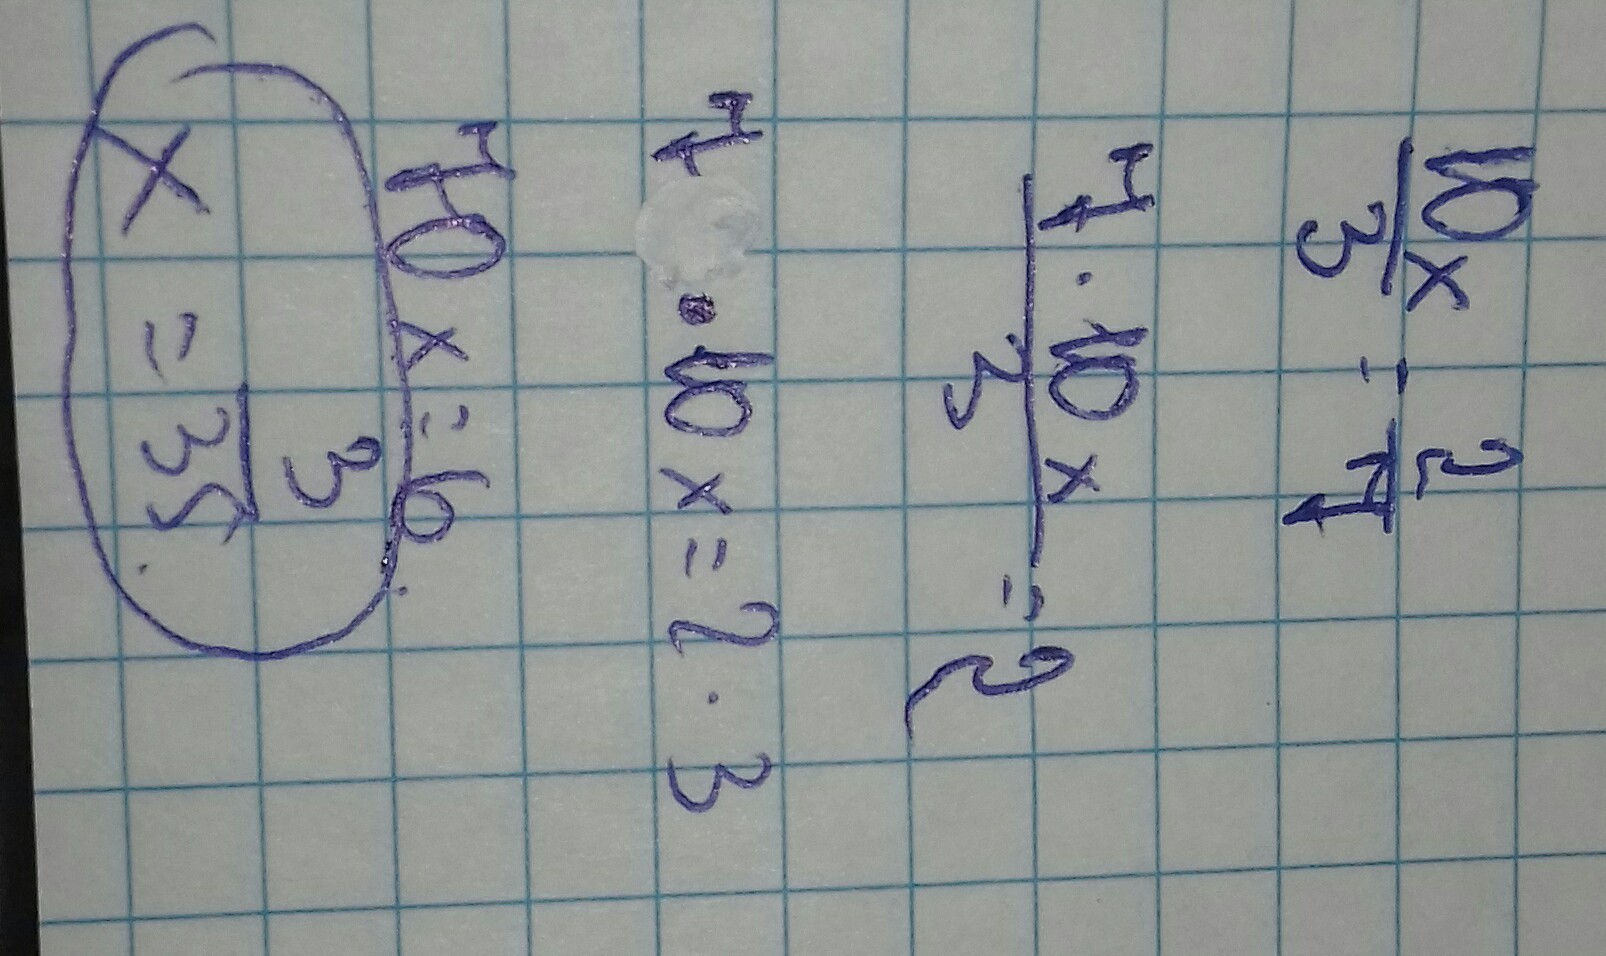 10x/3 = 2/7
7 · 10x/3 = 2
7 · 10x = 2 · 3
70x = 6.
x = 3/35.